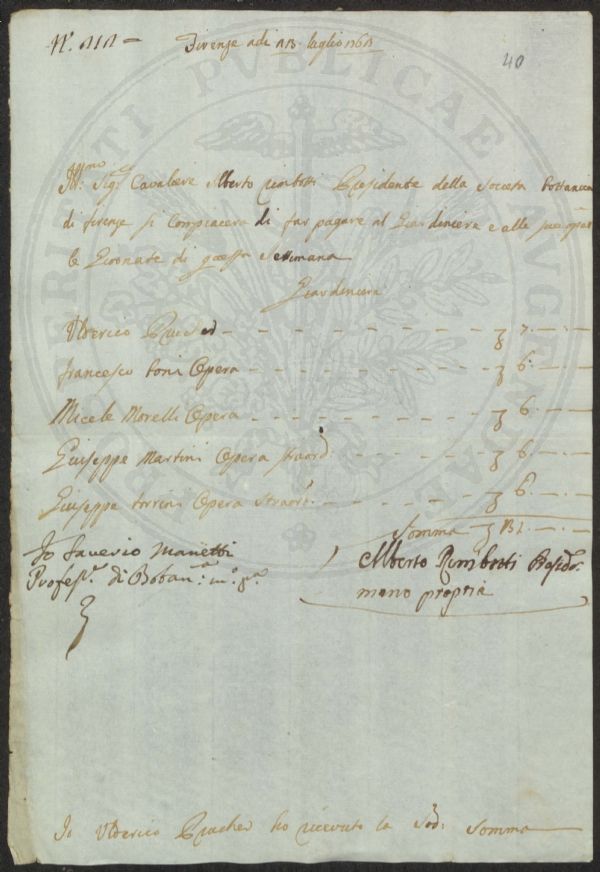 Nº: 212 = Firenze adi 13 luglio 1765
40
Ill:mo Sig:re Cavaliere Alberto Rimbotti Presidente della Società Bottanica
di firenze si Compiacera di far pagare al Giardiniere e alle sue opere
le Giornate di questa Settimana
Giardiniera
Ulderico Prucher — — — — — — — 7. — . —
francesco Toni Opera — — — — — — 6. — . —
Micele Morelli Opera — — — — — — 6. — . —
Giuseppe Martini Opera straord: — — — — 6. — . —
Giuseppe torrini Opera Straord: — — — — 6. — . —
Somma 31. — . —
Io Saverio Manetti
Profess.e di Botan.ca m.o p.a
Alberto Rimbotti Presid:e
mano propria
Io Ulderico Prucher ho ricevuto la Sud:a Somma